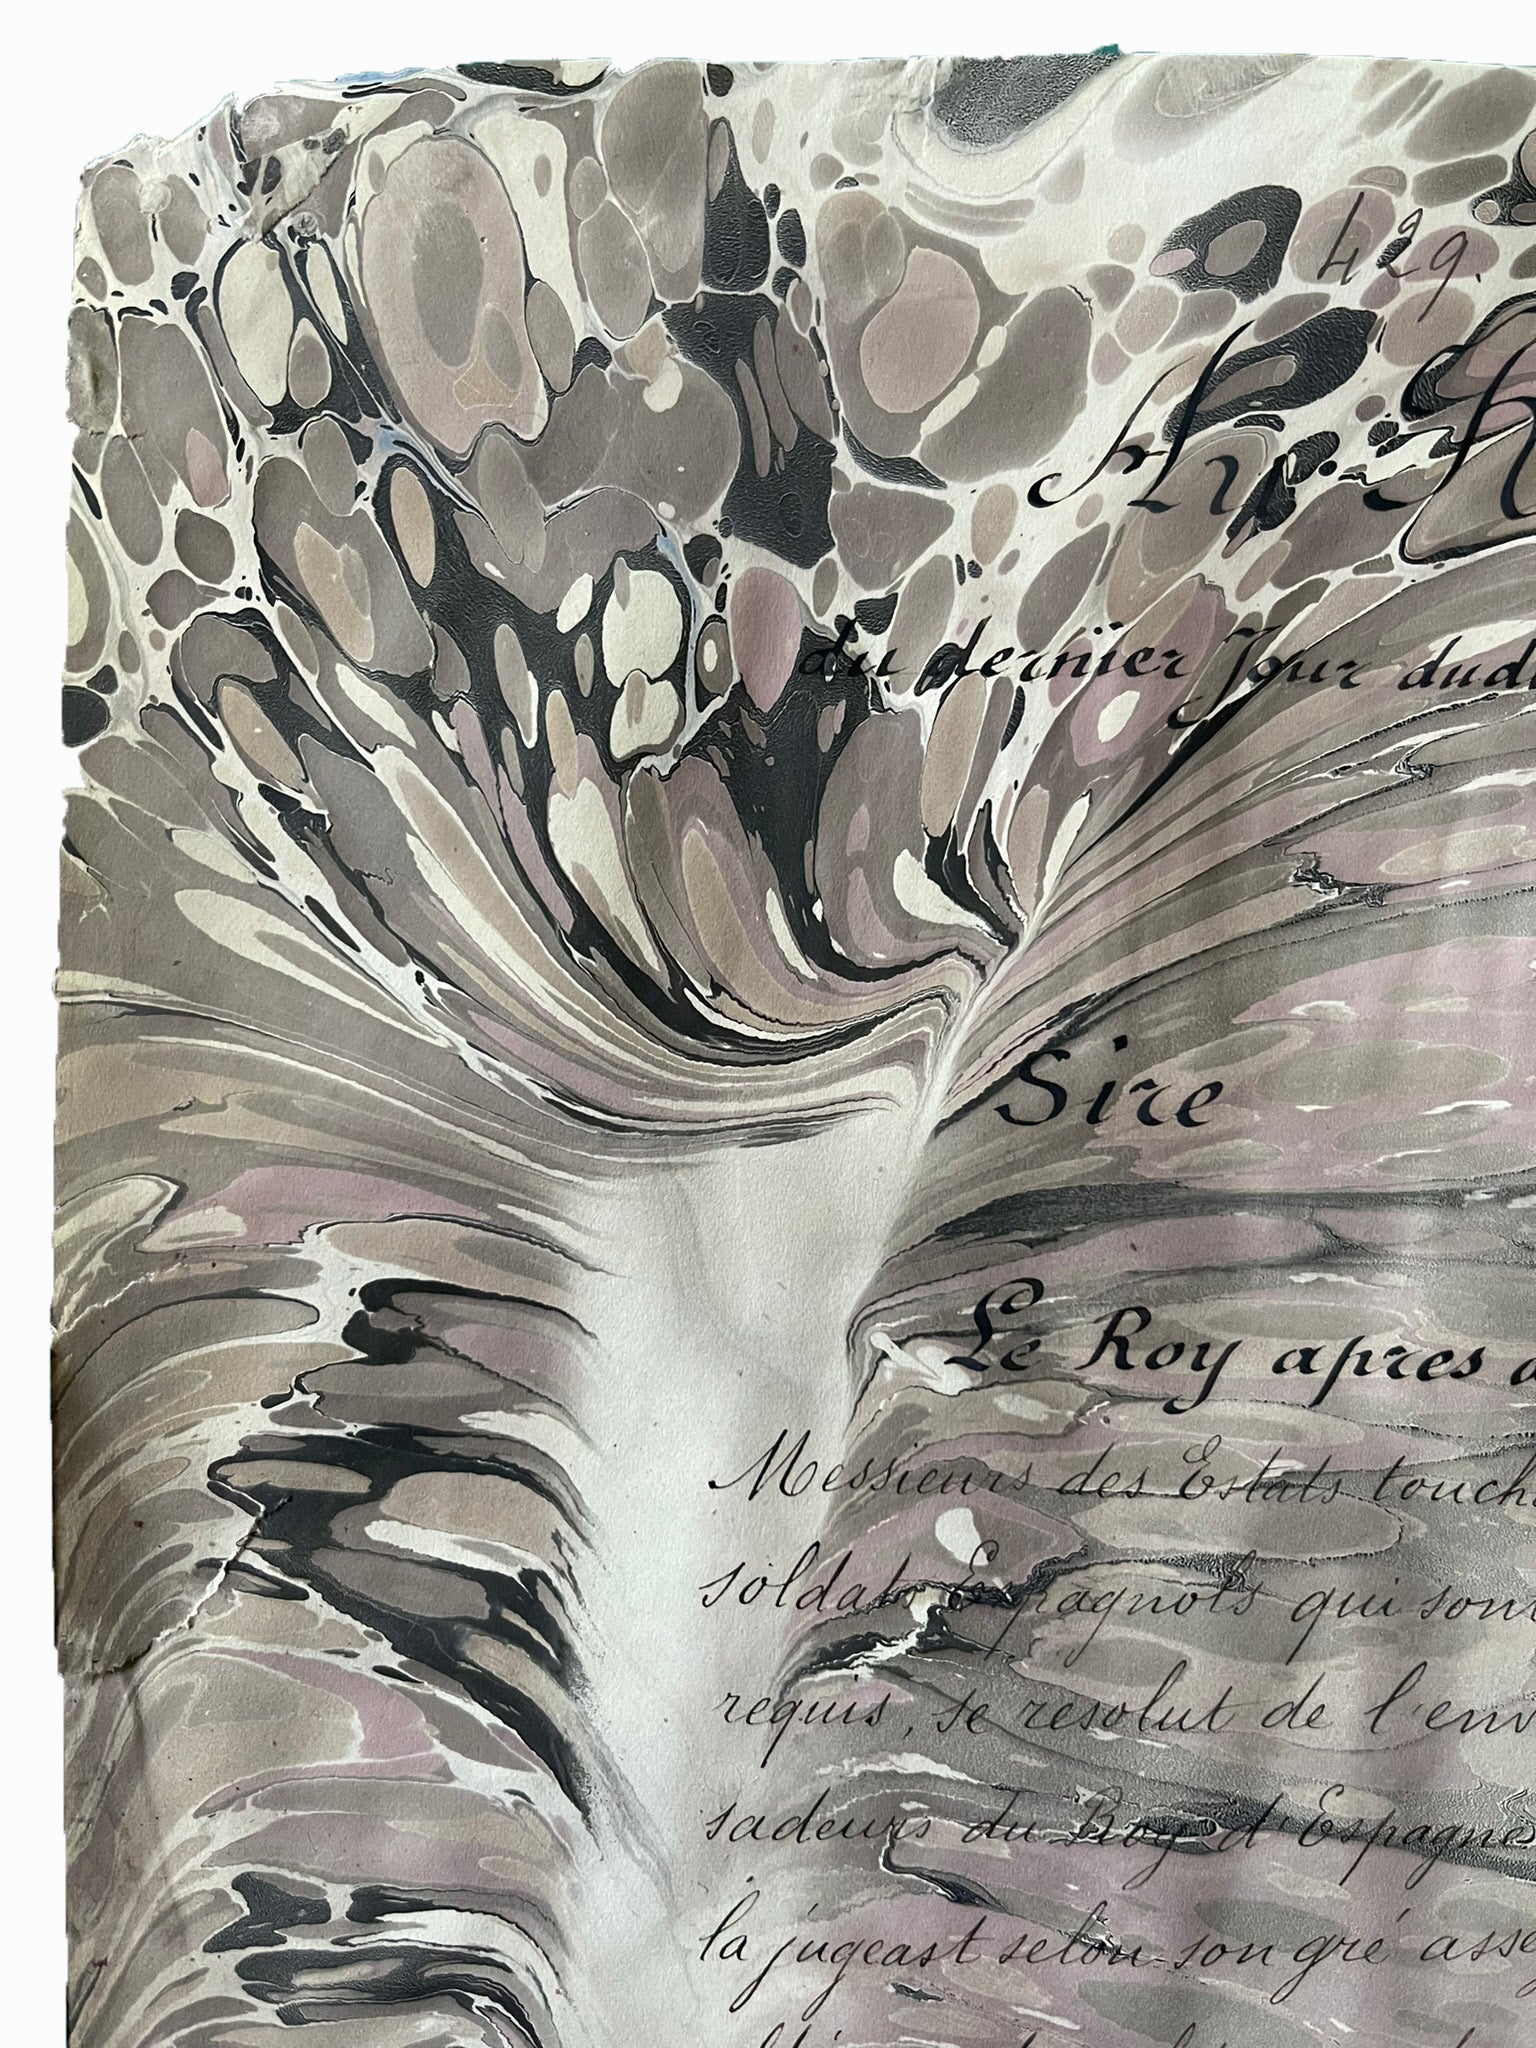 429.
Au R
du dernïer Jour dud
Sire
Le Roy apres a
Messieurs des Estats touch
soldats Espagnols qui sont
requis, se resolut de l'env
sadeurs du Roy d'Espagne
la jugeast selon son gré asse